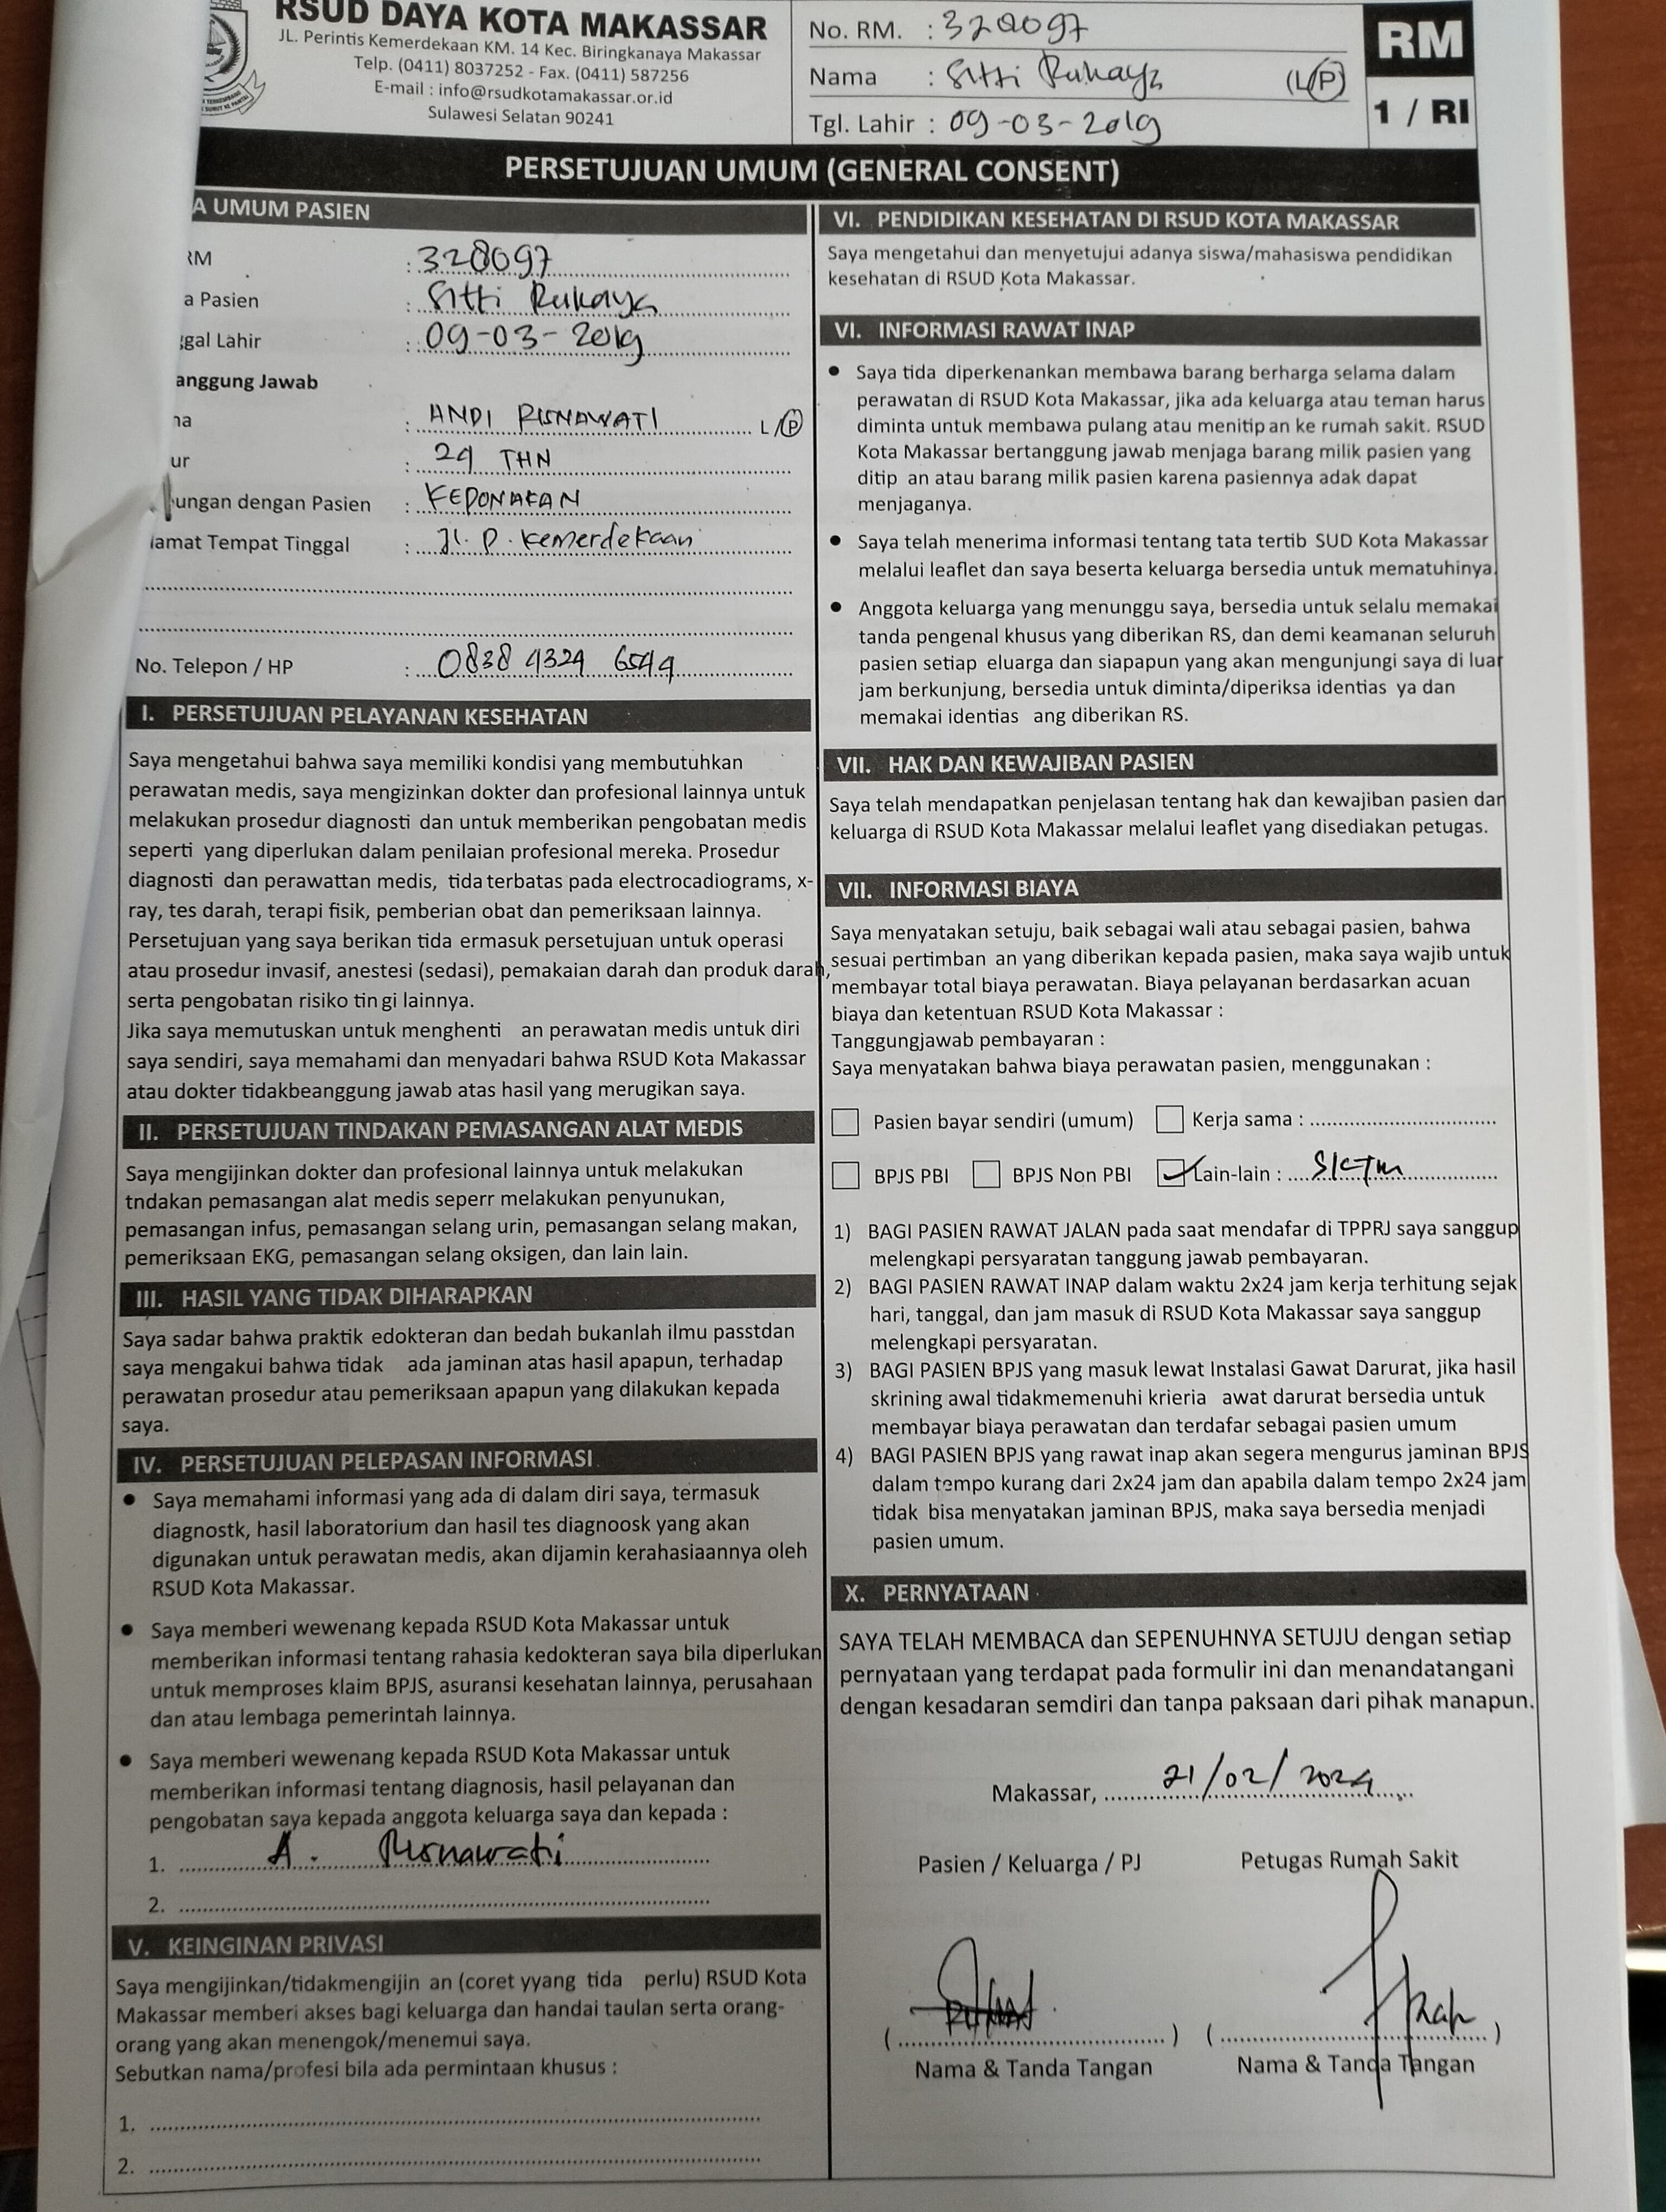 RSUD DAYA KOTA MAKASSAR
JL. Perintis Kemerdekaan KM. 14 Kec. Biringkanaya Makassar
Telp. (0411) 8037252 - Fax. (0411) 587256
E-mail : info@rsudkotamakassar.or.id
Sulawesi Selatan 90241
No. RM. : 328097
Nama : Sitti Rukaya (L/P)
Tgl. Lahir : 09-03-2019
RM
1 / RI
PERSETUJUAN UMUM (GENERAL CONSENT)
A UMUM PASIEN
RM : 328097
a Pasien : Sitti Rukaya
ggal Lahir : 09-03-2019
anggung Jawab
na : ANDI RISNAWATI L/P
ur : 29 THN
ungan dengan Pasien : KEPONAKAN
lamat Tempat Tinggal : Jl. P. Kemerdekaan
No. Telepon / HP : 0838 4324 6544
I. PERSETUJUAN PELAYANAN KESEHATAN
Saya mengetahui bahwa saya memiliki kondisi yang membutuhkan
perawatan medis, saya mengizinkan dokter dan profesional lainnya untuk
melakukan prosedur diagnosti dan untuk memberikan pengobatan medis
seperti yang diperlukan dalam penilaian profesional mereka. Prosedur
diagnosti dan perawattan medis, tida terbatas pada electrocadiograms, x-
ray, tes darah, terapi fisik, pemberian obat dan pemeriksaan lainnya.
Persetujuan yang saya berikan tida ermasuk persetujuan untuk operasi
atau prosedur invasif, anestesi (sedasi), pemakaian darah dan produk darah,
serta pengobatan risiko tin gi lainnya.
Jika saya memutuskan untuk menghenti an perawatan medis untuk diri
saya sendiri, saya memahami dan menyadari bahwa RSUD Kota Makassar
atau dokter tidakbeanggung jawab atas hasil yang merugikan saya.
II. PERSETUJUAN TINDAKAN PEMASANGAN ALAT MEDIS
Saya mengijinkan dokter dan profesional lainnya untuk melakukan
tndakan pemasangan alat medis seperr melakukan penyunukan,
pemasangan infus, pemasangan selang urin, pemasangan selang makan,
pemeriksaan EKG, pemasangan selang oksigen, dan lain lain.
III. HASIL YANG TIDAK DIHARAPKAN
Saya sadar bahwa praktik edokteran dan bedah bukanlah ilmu passtdan
saya mengakui bahwa tidak ada jaminan atas hasil apapun, terhadap
perawatan prosedur atau pemeriksaan apapun yang dilakukan kepada
saya.
IV. PERSETUJUAN PELEPASAN INFORMASI
• Saya memahami informasi yang ada di dalam diri saya, termasuk
diagnostk, hasil laboratorium dan hasil tes diagnoosk yang akan
digunakan untuk perawatan medis, akan dijamin kerahasiaannya oleh
RSUD Kota Makassar.
• Saya memberi wewenang kepada RSUD Kota Makassar untuk
memberikan informasi tentang rahasia kedokteran saya bila diperlukan
untuk memproses klaim BPJS, asuransi kesehatan lainnya, perusahaan
dan atau lembaga pemerintah lainnya.
• Saya memberi wewenang kepada RSUD Kota Makassar untuk
memberikan informasi tentang diagnosis, hasil pelayanan dan
pengobatan saya kepada anggota keluarga saya dan kepada :
1. A. Risnawati
2.
V. KEINGINAN PRIVASI
Saya mengijinkan/tidakmengijin an (coret yyang tida perlu) RSUD Kota
Makassar memberi akses bagi keluarga dan handai taulan serta orang-
orang yang akan menengok/menemui saya.
Sebutkan nama/profesi bila ada permintaan khusus :
1.
2.
VI. PENDIDIKAN KESEHATAN DI RSUD KOTA MAKASSAR
Saya mengetahui dan menyetujui adanya siswa/mahasiswa pendidikan
kesehatan di RSUD Kota Makassar.
VI. INFORMASI RAWAT INAP
• Saya tida diperkenankan membawa barang berharga selama dalam
perawatan di RSUD Kota Makassar, jika ada keluarga atau teman harus
diminta untuk membawa pulang atau menitip an ke rumah sakit. RSUD
Kota Makassar bertanggung jawab menjaga barang milik pasien yang
ditip an atau barang milik pasien karena pasiennya adak dapat
menjaganya.
• Saya telah menerima informasi tentang tata tertib SUD Kota Makassar
melalui leaflet dan saya beserta keluarga bersedia untuk mematuhinya.
• Anggota keluarga yang menunggu saya, bersedia untuk selalu memakai
tanda pengenal khusus yang diberikan RS, dan demi keamanan seluruh
pasien setiap eluarga dan siapapun yang akan mengunjungi saya di luar
jam berkunjung, bersedia untuk diminta/diperiksa identias ya dan
memakai identias ang diberikan RS.
VII. HAK DAN KEWAJIBAN PASIEN
Saya telah mendapatkan penjelasan tentang hak dan kewajiban pasien dan
keluarga di RSUD Kota Makassar melalui leaflet yang disediakan petugas.
VII. INFORMASI BIAYA
Saya menyatakan setuju, baik sebagai wali atau sebagai pasien, bahwa
sesuai pertimban an yang diberikan kepada pasien, maka saya wajib untuk
membayar total biaya perawatan. Biaya pelayanan berdasarkan acuan
biaya dan ketentuan RSUD Kota Makassar :
Tanggungjawab pembayaran :
Saya menyatakan bahwa biaya perawatan pasien, menggunakan :
Pasien bayar sendiri (umum) Kerja sama :
BPJS PBI BPJS Non PBI Lain-lain : SKTM
1) BAGI PASIEN RAWAT JALAN pada saat mendafar di TPPRJ saya sanggup
melengkapi persyaratan tanggung jawab pembayaran.
2) BAGI PASIEN RAWAT INAP dalam waktu 2x24 jam kerja terhitung sejak
hari, tanggal, dan jam masuk di RSUD Kota Makassar saya sanggup
melengkapi persyaratan.
3) BAGI PASIEN BPJS yang masuk lewat Instalasi Gawat Darurat, jika hasil
skrining awal tidakmemenuhi krieria awat darurat bersedia untuk
membayar biaya perawatan dan terdafar sebagai pasien umum
4) BAGI PASIEN BPJS yang rawat inap akan segera mengurus jaminan BPJS
dalam tempo kurang dari 2x24 jam dan apabila dalam tempo 2x24 jam
tidak bisa menyatakan jaminan BPJS, maka saya bersedia menjadi
pasien umum.
X. PERNYATAAN
SAYA TELAH MEMBACA dan SEPENUHNYA SETUJU dengan setiap
pernyataan yang terdapat pada formulir ini dan menandatangani
dengan kesadaran semdiri dan tanpa paksaan dari pihak manapun.
Makassar, 21/02/2024
Pasien / Keluarga / PJ Petugas Rumah Sakit
Nama & Tanda Tangan Nama & Tanda Tangan